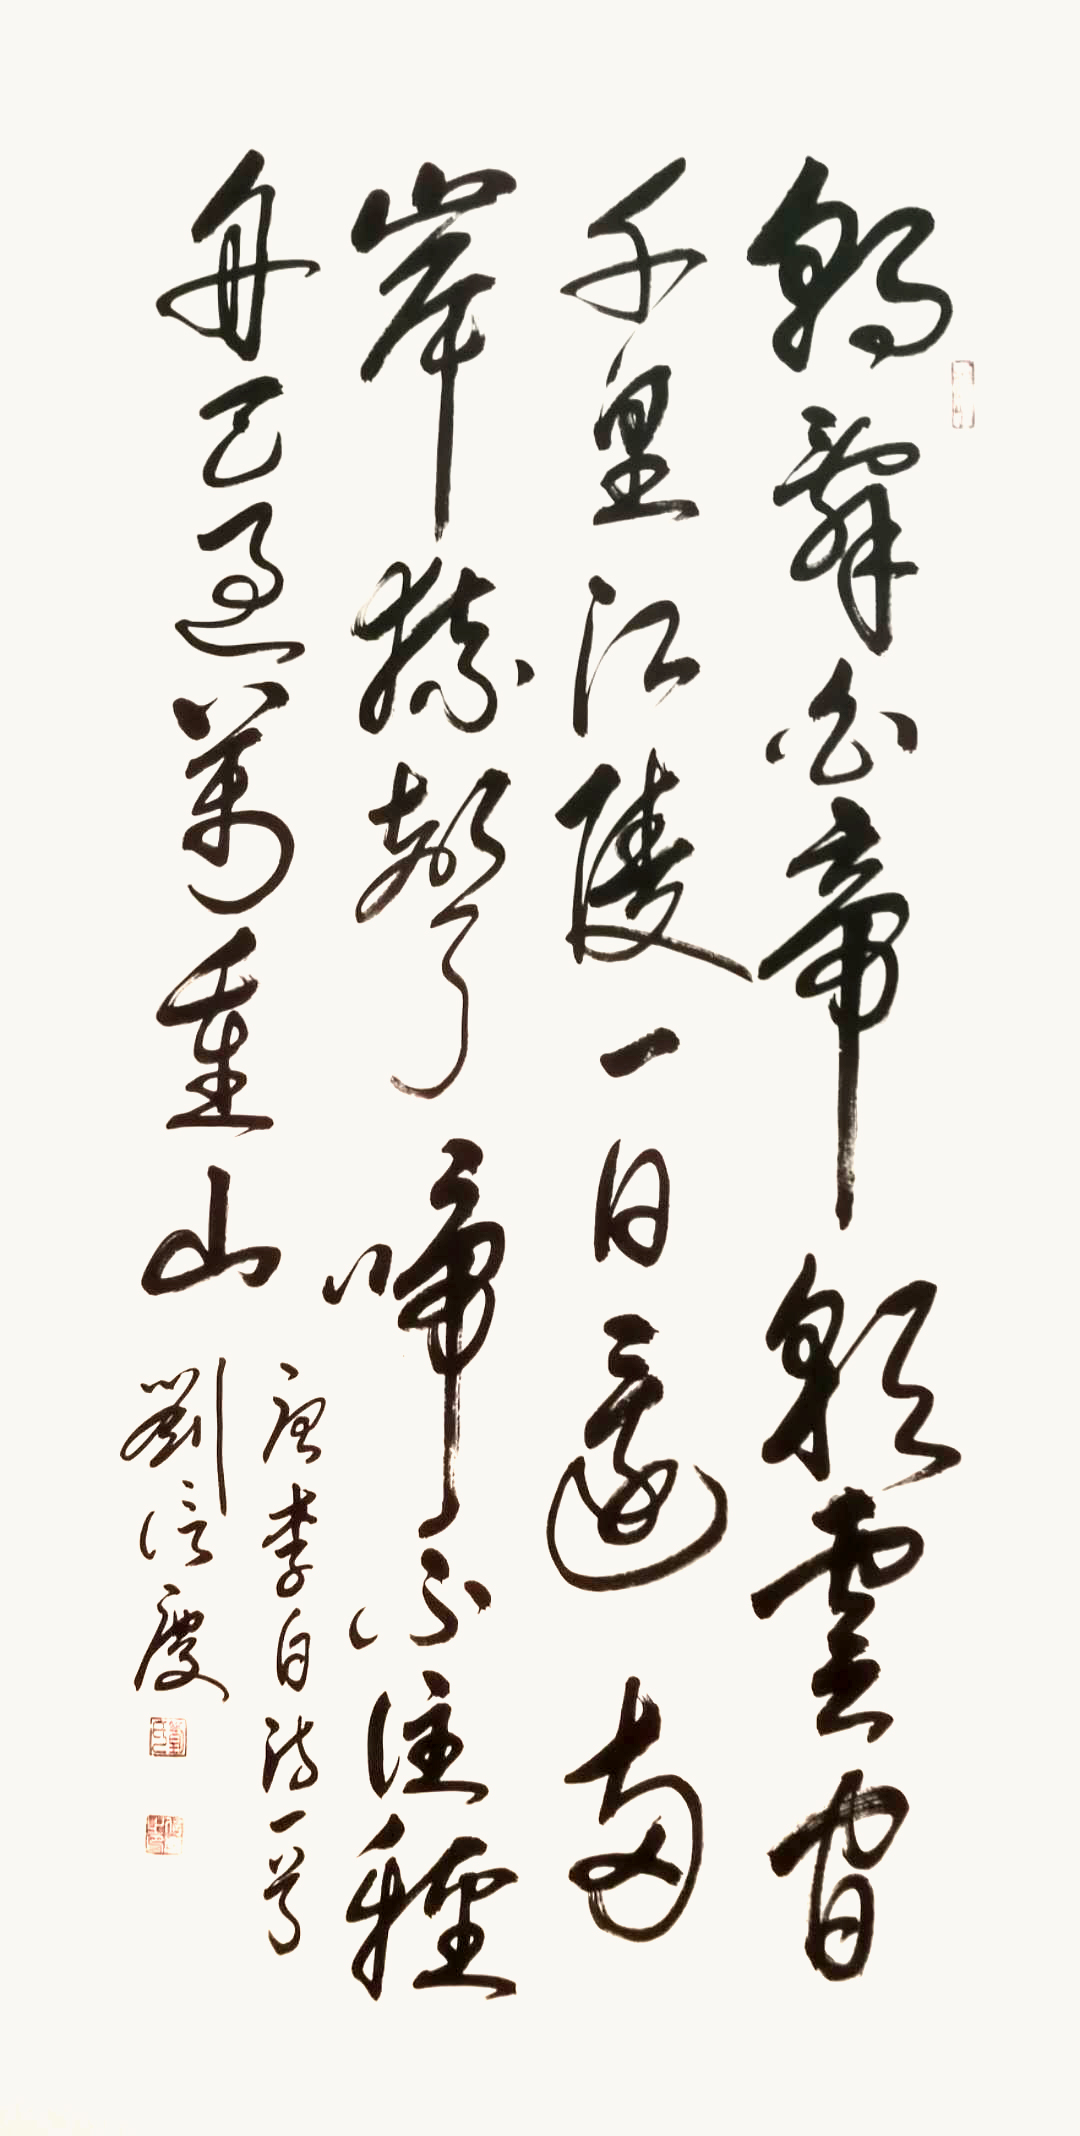 朝辭白帝彩雲間
千里江陵一日還兩
岸猿聲啼不住輕
舟已過萬重山
唐李白詩一首
劉信慶